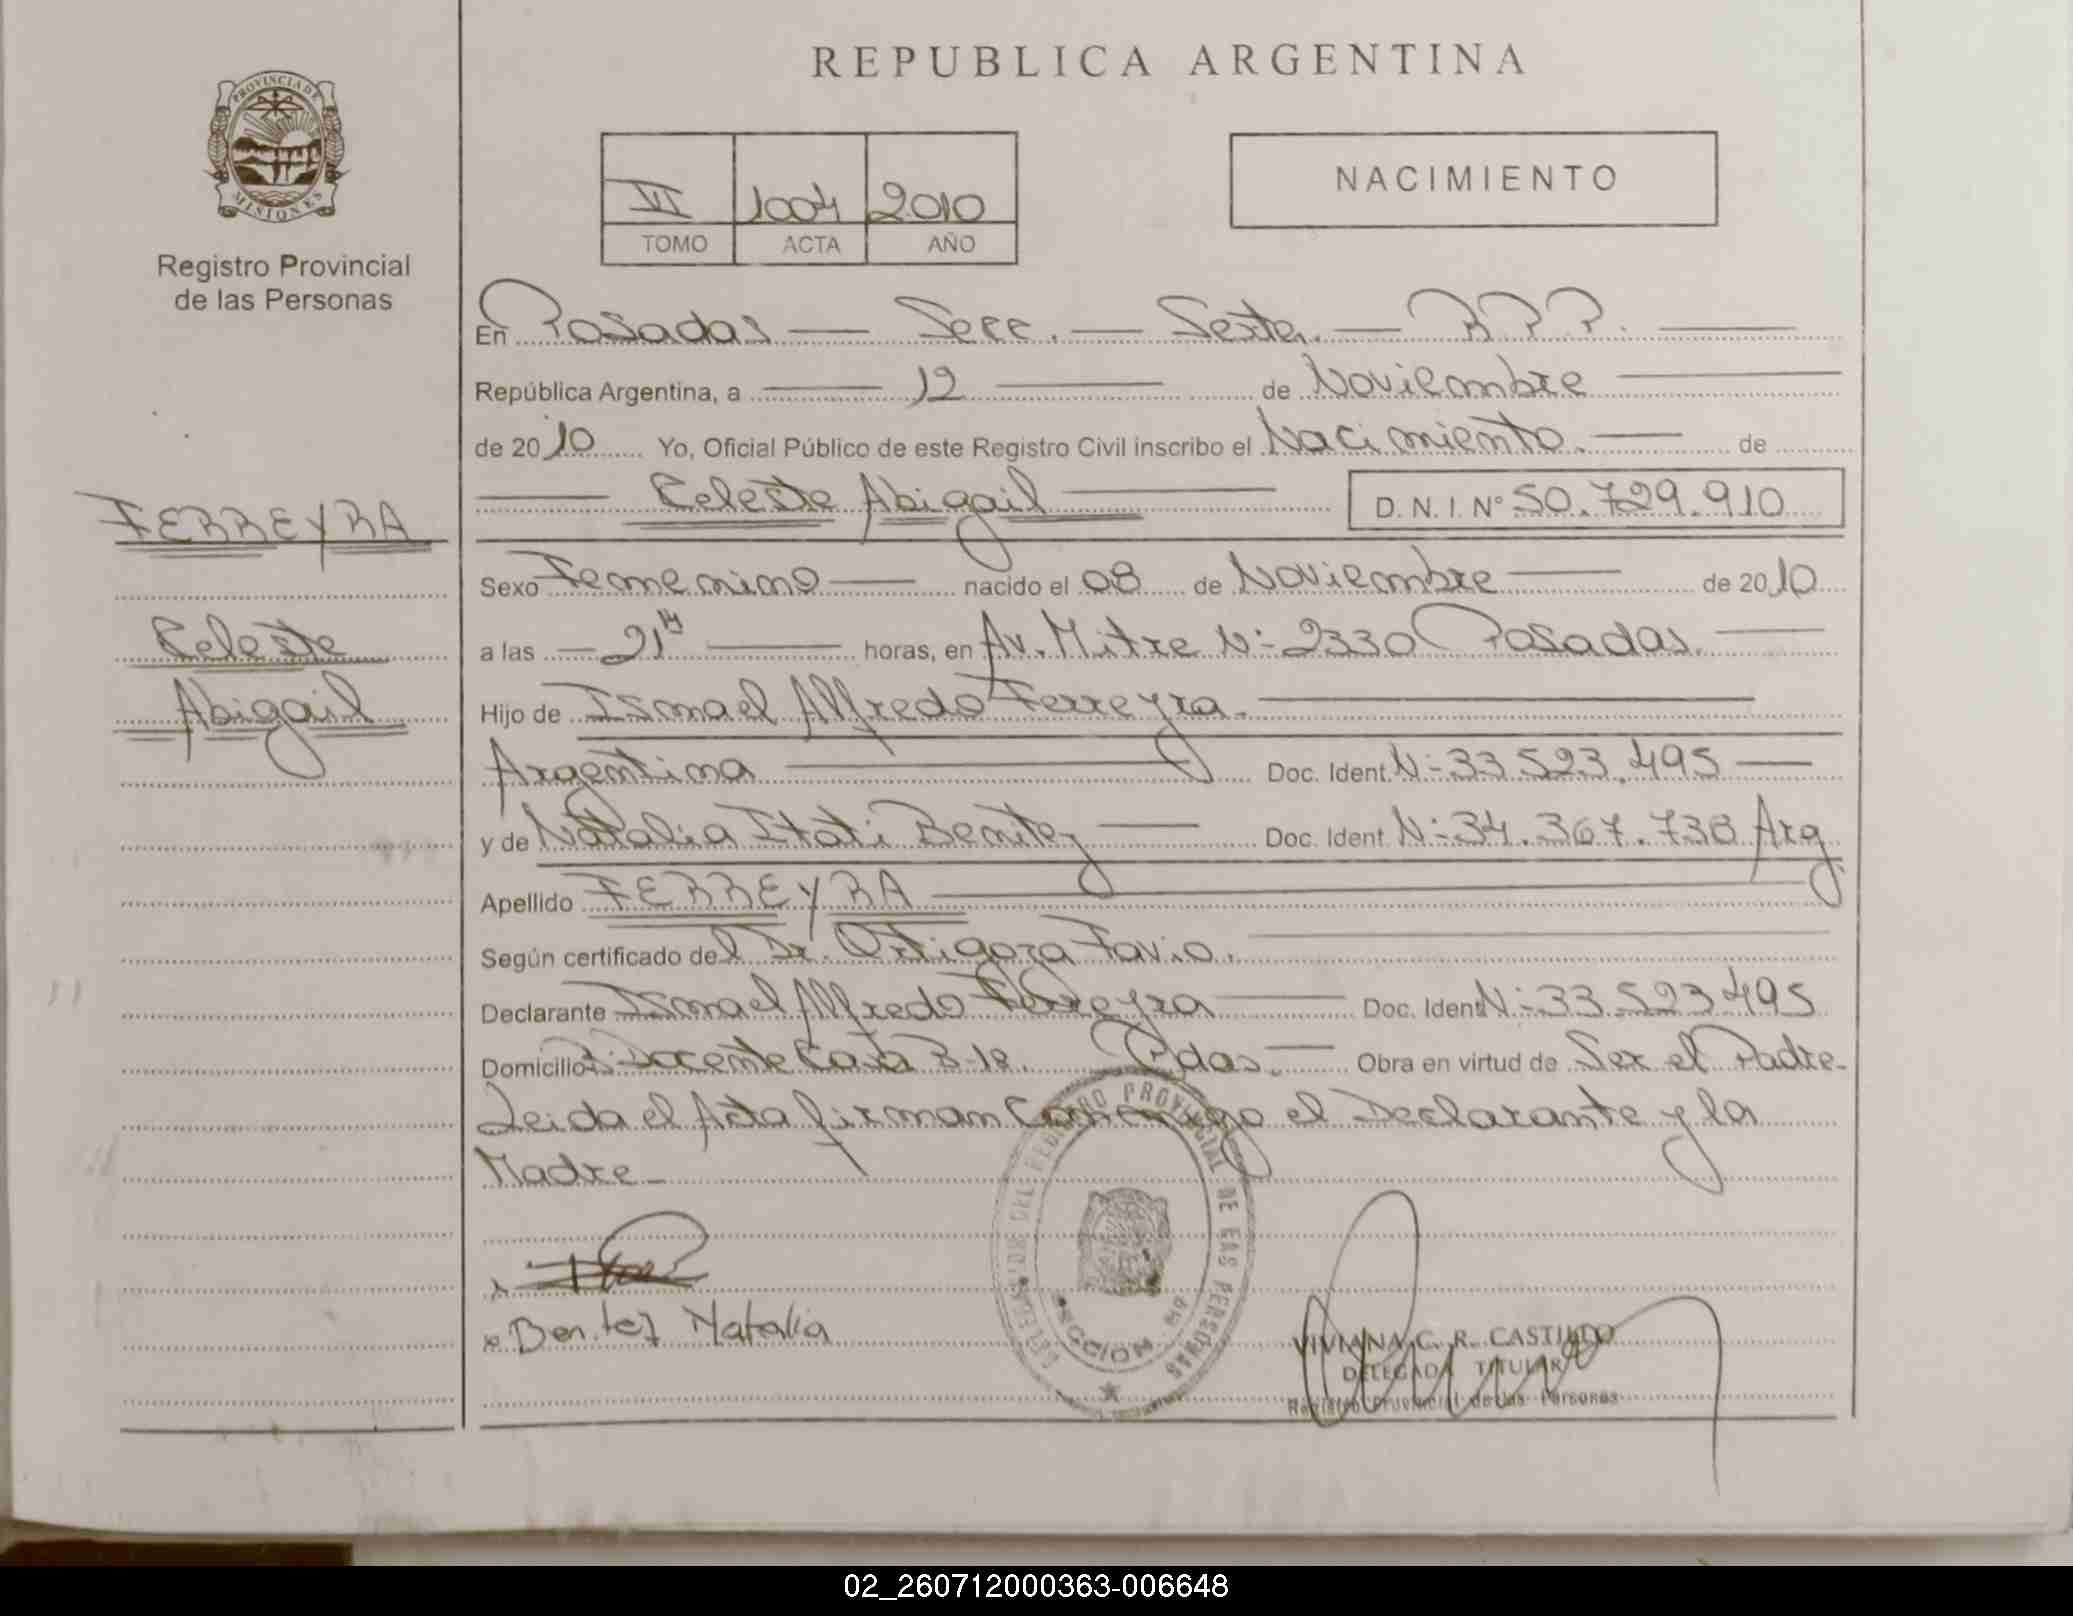 REPUBLICA ARGENTINA
PROVINCIA DE
MISIONES
Registro Provincial
de las Personas
VI 1004 2010
TOMO ACTA AÑO
NACIMIENTO
En Posadas — Secc. — Sexta. — R.P.P.
República Argentina, a — 12 — de Noviembre
de 2010 Yo, Oficial Público de este Registro Civil inscribo el Nacimiento. — de
Celeste Abigail D. N. I. N° 50.729.910
FERREYRA
Celeste
Abigail
Sexo Femenino — nacido el 08 de Noviembre — de 2010
a las — 21 hs — horas, en Av. Mitre N:- 2330 Posadas.
Hijo de Ismael Alfredo Ferreyra.
Argentina — Doc. Ident. N:- 33.523.495 —
y de Natalia Itati Benitez — Doc. Ident. N:- 34.367.738 Arg
Apellido FERREYRA
Según certificado del Dr. Ortigoza Favio.
Declarante Ismael Alfredo Ferreyra — Doc. Ident N:- 33.523495
Domicilio B: Docente Casa B-18. Pdas. — Obra en virtud de Ser el Padre-
Leida el Acta firman Conmigo el Declarante y la
Madre-
x Benitez Natalia
DEL REGISTRO PROVINCIAL DE LAS PERSONAS
SECCION
VIVIANA C. R. CASTILLO
DELEGADA TITULAR
Registro Provincial de las Personas
02_260712000363-006648